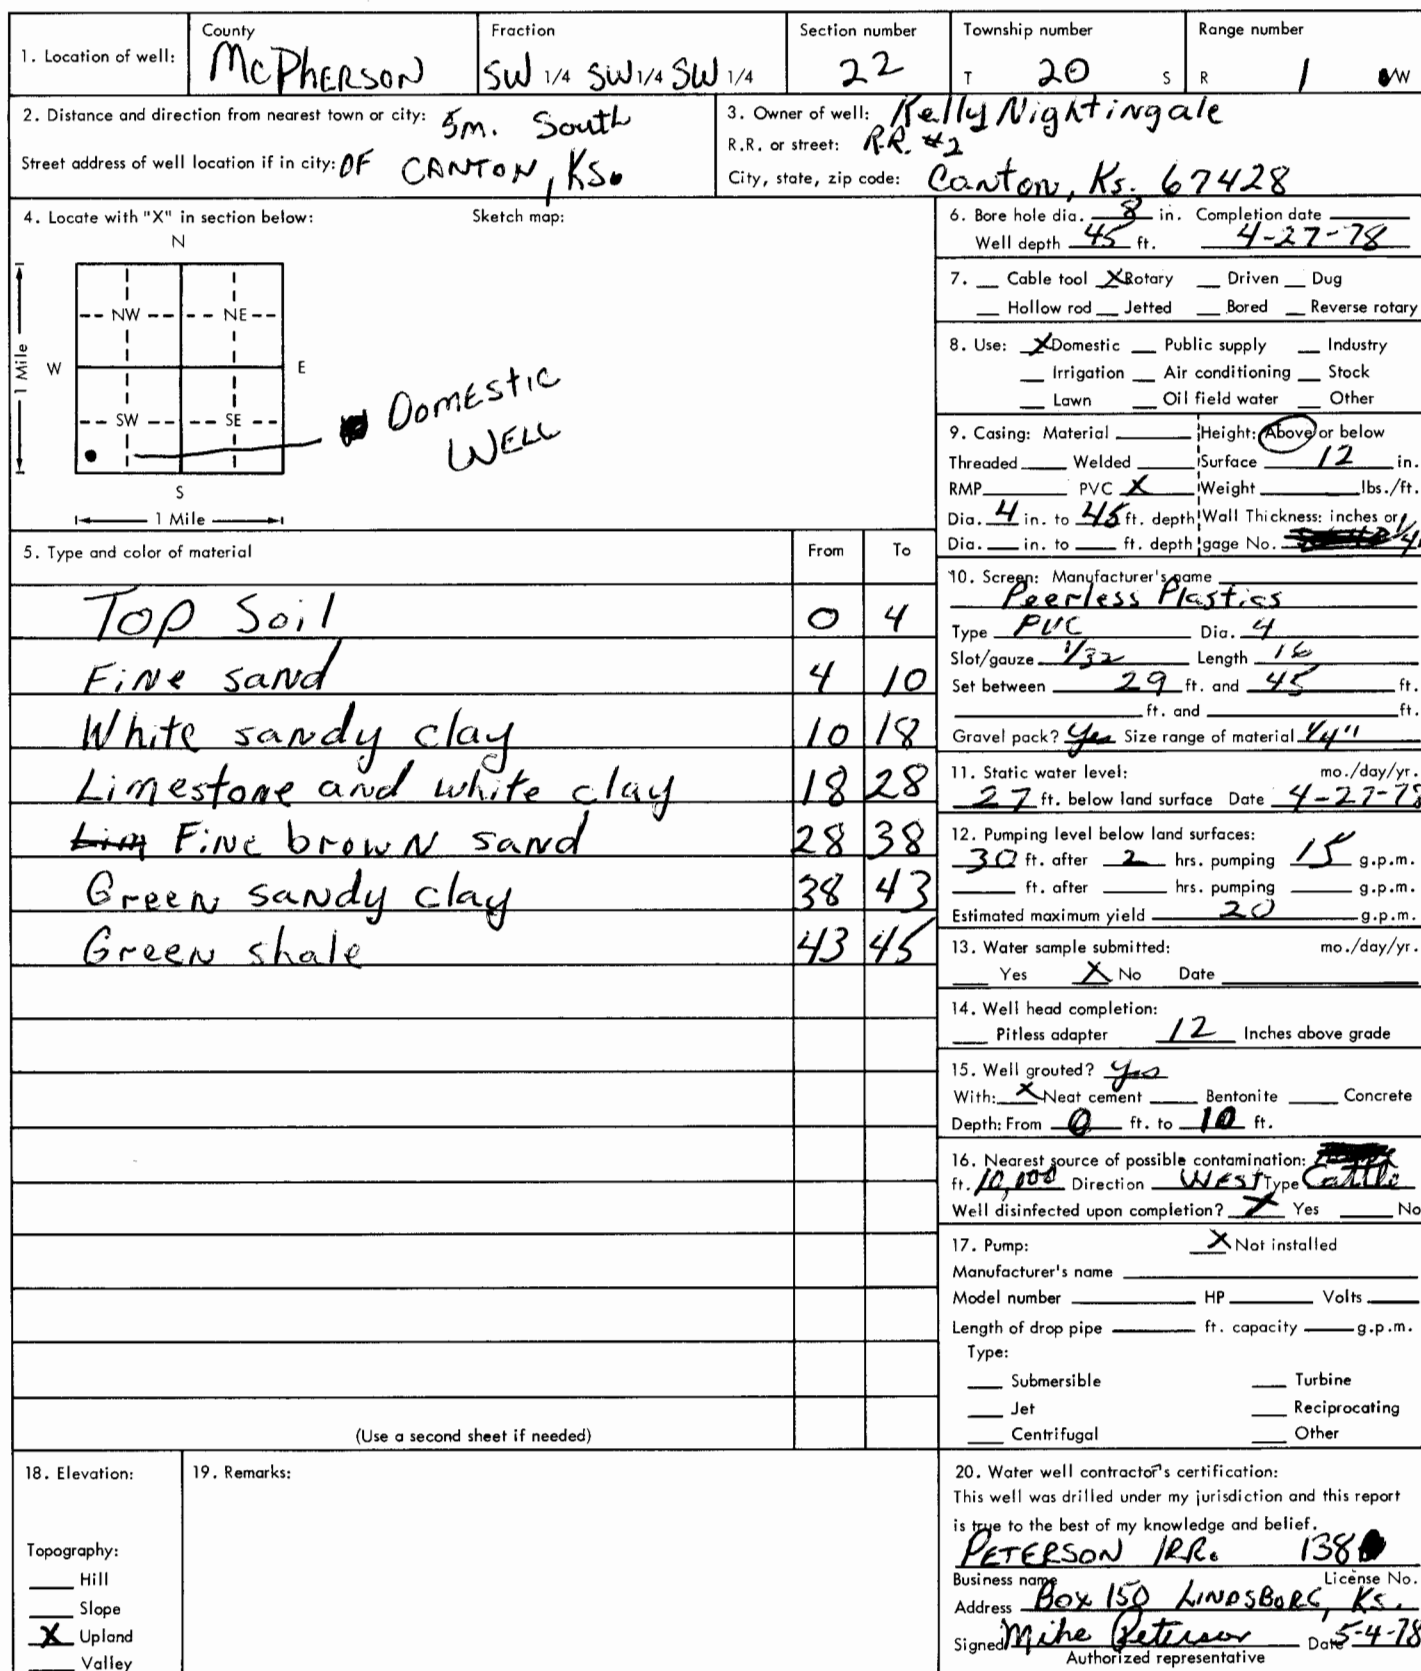 1. Location of well: County McPHERSON Fraction SW 1/4 SW 1/4 SW 1/4 Section number 22 Township number T 20 S Range number R 1 W
2. Distance and direction from nearest town or city: 5m. South
Street address of well location if in city: OF CANTON, KS.
3. Owner of well: Kelly Nightingale
R.R. or street: R.R. #2
City, state, zip code: Canton, Ks. 67428
4. Locate with "X" in section below: Sketch map:
N
NW NE
W E
1 Mile
SW SE
S
1 Mile
DOMESTIC
WELL
5. Type and color of material From To
Top Soil 0 4
Fine sand 4 10
White sandy clay 10 18
Limestone and white clay 18 28
Lim Fine brown sand 28 38
Green sandy clay 38 43
Green shale 43 45
(Use a second sheet if needed)
6. Bore hole dia. 8 in. Completion date
Well depth 45 ft. 4-27-78
7. __ Cable tool X Rotary __ Driven __ Dug
__ Hollow rod __ Jetted __ Bored __ Reverse rotary
8. Use: X Domestic __ Public supply __ Industry
__ Irrigation __ Air conditioning __ Stock
__ Lawn __ Oil field water __ Other
9. Casing: Material ____ Height: Above or below
Threaded ____ Welded ____ Surface 12 in.
RMP ____ PVC X Weight ____ lbs./ft.
Dia. 4 in. to 45 ft. depth Wall Thickness: inches or
Dia. __ in. to __ ft. depth gage No. 1/4
10. Screen: Manufacturer's name
Peerless Plastics
Type PVC Dia. 4
Slot/gauze 1/32 Length 16
Set between 29 ft. and 45 ft.
____ ft. and ____ ft.
Gravel pack? Yes Size range of material 1/4"
11. Static water level: mo./day/yr.
27 ft. below land surface Date 4-27-78
12. Pumping level below land surfaces:
30 ft. after 2 hrs. pumping 15 g.p.m.
____ ft. after ____ hrs. pumping ____ g.p.m.
Estimated maximum yield 20 g.p.m.
13. Water sample submitted: mo./day/yr.
__ Yes X No Date ____
14. Well head completion:
__ Pitless adapter 12 Inches above grade
15. Well grouted? Yes
With: X Neat cement ____ Bentonite ____ Concrete
Depth: From 0 ft. to 10 ft.
16. Nearest source of possible contamination:
ft. 10,000 Direction West Type Cattle
Well disinfected upon completion? X Yes ____ No
17. Pump: X Not installed
Manufacturer's name ____
Model number ____ HP ____ Volts ____
Length of drop pipe ____ ft. capacity ____ g.p.m.
Type:
__ Submersible __ Turbine
__ Jet __ Reciprocating
__ Centrifugal __ Other
18. Elevation:
Topography:
__ Hill
__ Slope
X Upland
__ Valley
19. Remarks:
20. Water well contractor's certification:
This well was drilled under my jurisdiction and this report
is true to the best of my knowledge and belief.
PETERSON IRR. 138
Business name License No.
Address Box 150 LINDSBORG, Ks.
Signed Mike Peterson Date 5-4-78
Authorized representative